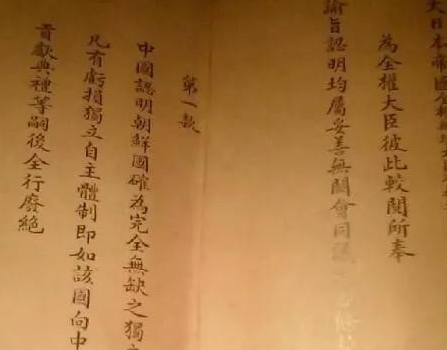 大日本帝國
為全權大臣彼此較閱所奉
諭旨認明均屬妥善無闕會同議
第一款
中國認明朝鮮國確為完全無缺之獨立
凡有虧損獨立自主體制即如該國向中
貢獻典禮等嗣後全行廢絕